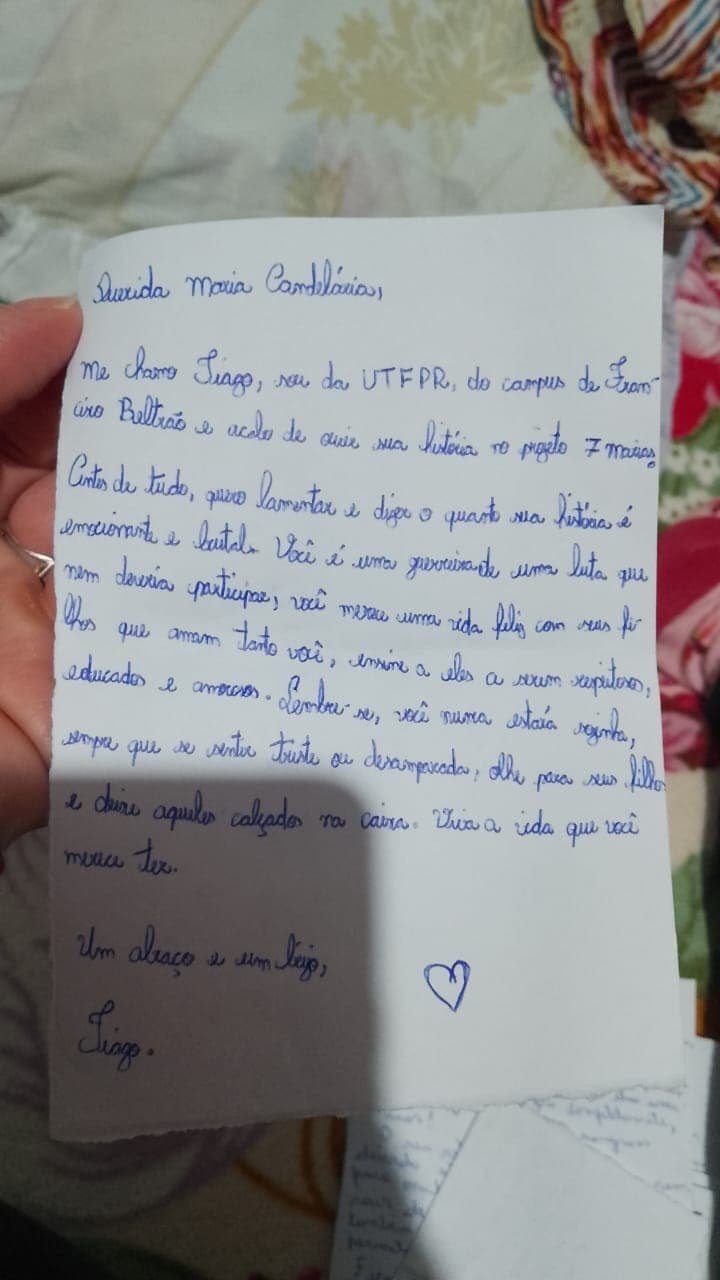 Querida Maria Candelária,
Me chamo Tiago, sou da UTFPR, do campus de Fran-
cisco Beltrão e acabo de ouvir sua história no projeto 7 Marias.
Antes de tudo, quero lamentar e dizer o quanto sua história é
emocionante e brutal. Você é uma guerreira de uma luta que
nem deveria participar, você merece uma vida feliz com seus fi-
lhos que amam tanto você, ensine a eles a serem respeitosos,
educados e amorosos. Lembre-se, você nunca estará sozinha,
sempre que se sentir triste ou desamparada, olhe para seus filhos
e deixe aqueles calçados na caixa. Viva a vida que você
merece ter.
Um abraço e um beijo,
Tiago.